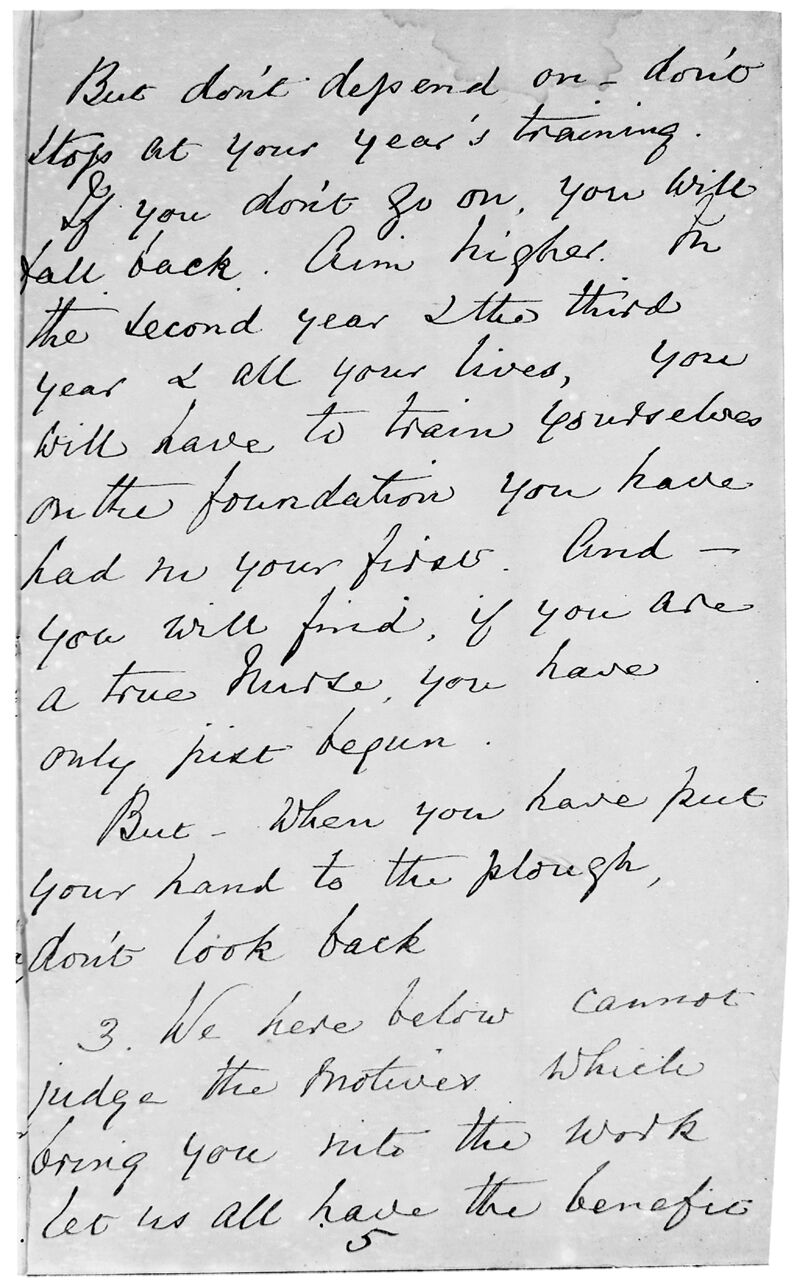 But don't depend on - don't
stop at your year's training.
If you don't go on, you will
fall back. Aim higher. In
the second year & the third
year & all your lives, you
will have to train yourselves
on the foundation you have
had in your first. And —
you will find, if you are
a true Nurse, you have
only just begun.
But - when you have put
your hand to the plough,
don't look back
3. We here below cannot
judge the motives which
bring you into the work
let us all have the benefit
5